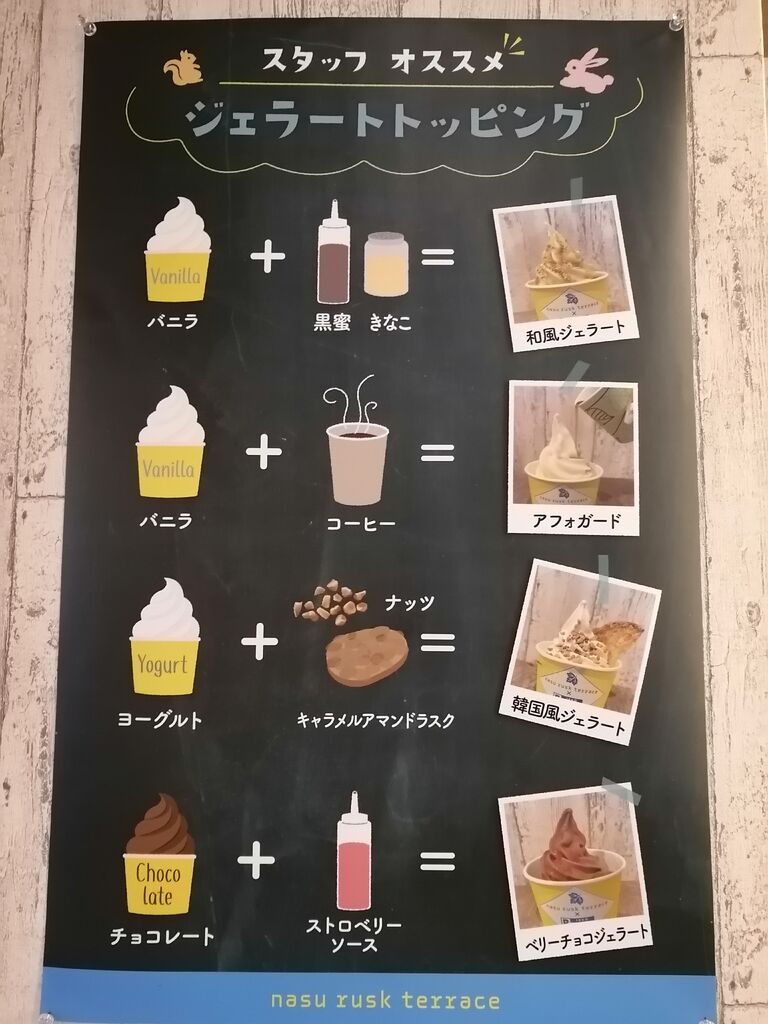 スタッフ オススメ
ジェラートトッピング
Vanilla
バニラ
+
黒蜜 きなこ
=
nasu rusk terrace
×
和風ジェラート
Vanilla
バニラ
+
コーヒー
=
nasu rusk terrace
アフォガード
Yogurt
ヨーグルト
+
ナッツ
キャラメルアマンドラスク
=
nasu rusk terrace
×
韓国風ジェラート
Choco
late
チョコレート
+
ストロベリー
ソース
=
nasu rusk terrace
×
ベリーチョコジェラート
nasu rusk terrace